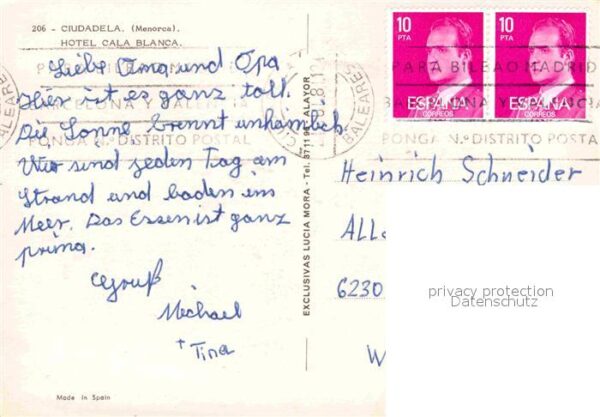 206 - CIUDADELA. (Menorca).
HOTEL CALA BLANCA.
Liebe Oma und Opa
Hier ist es ganz toll.
Die Sonne brennt unheimlich.
Wir sind jeden Tag am
Strand und baden im
Meer. Das Essen ist ganz
prima.
Gruß
Michael
+ Tina
Made in Spain
EXCLUSIVAS LUCIA MORA - Tel. 371191 - ALAYOR
10
PTA
ESPAÑA
CORREOS
10
PTA
ESPAÑA
CORREOS
BALEARES
PARA BILBAO MADRID
BARCELONA Y VALENCIA
PONGA N.º DISTRITO POSTAL
Heinrich Schneider
6230
privacy protection
Datenschutz